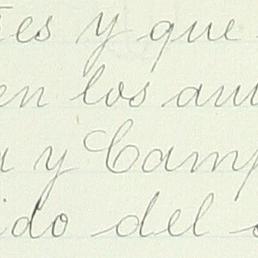 es y que
en los
y Camp
ido del